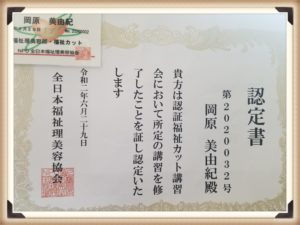 認定書
第2020032号
岡原 美由紀殿
貴方は認証福祉カット講習
会において所定の講習を修
了したことを証し認定いた
します
令和二年六月二十九日
全日本福祉理美容協会
岡原 美由紀
福祉理美容師・福祉カット
NPO 全日本福祉理美容協会